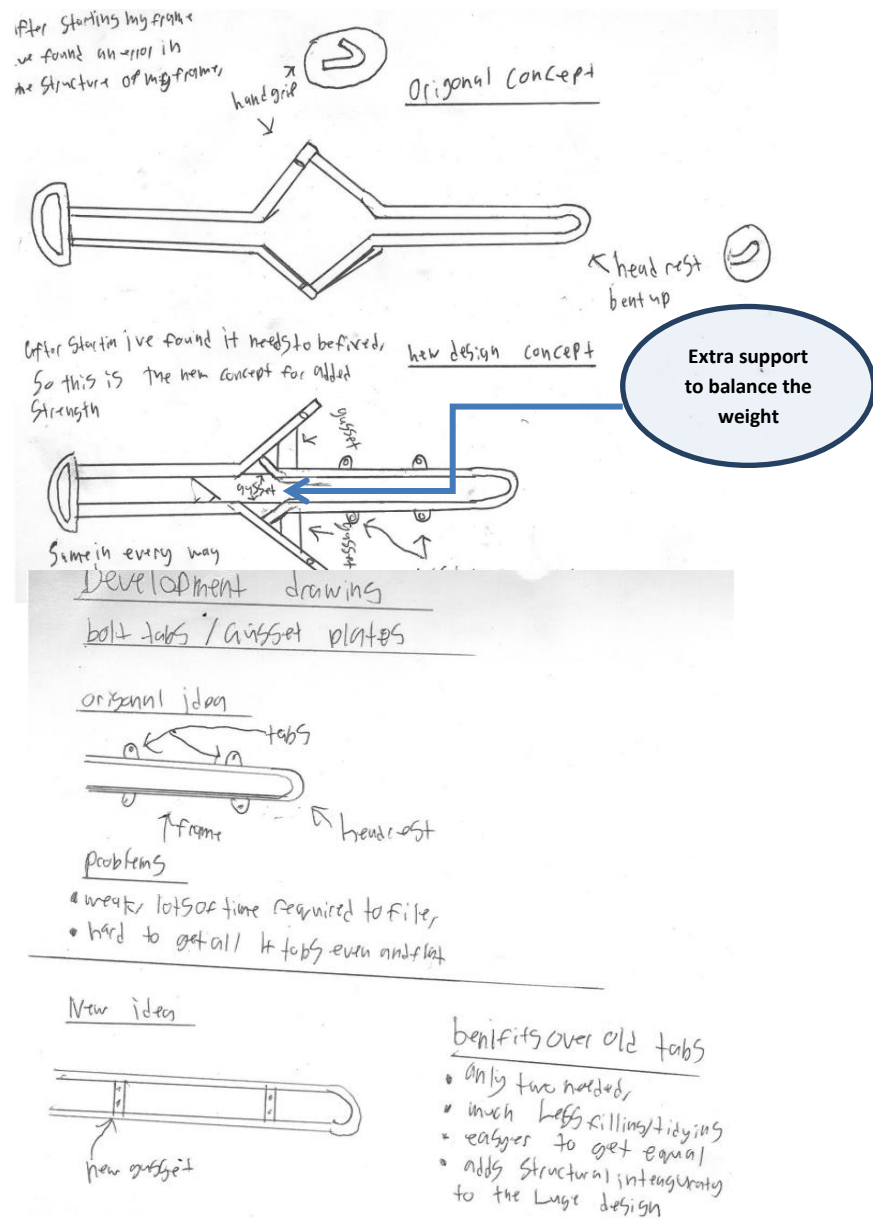 after starting my frame
ive found an error in
the structure of my frame,
handgrip
Origonal Concept
head rest
bent up
after startin ive found it needs to be fixed,
So this is the new concept for added
Strength
new design concept
Extra support
to balance the
weight
gusset
gusset
gusset
Same in every way
Development drawing
bolt tabs / Gusset plates
origanal idea
tabs
frame
headrest
problems
• weak, lots of time required to file,
• hard to get all 4 tabs even and flat
New idea
new gusset
benifits over old tabs
• only two needed,
• much Less filling/tidying
• easyer to get equal
• adds Structural
to the Luge design